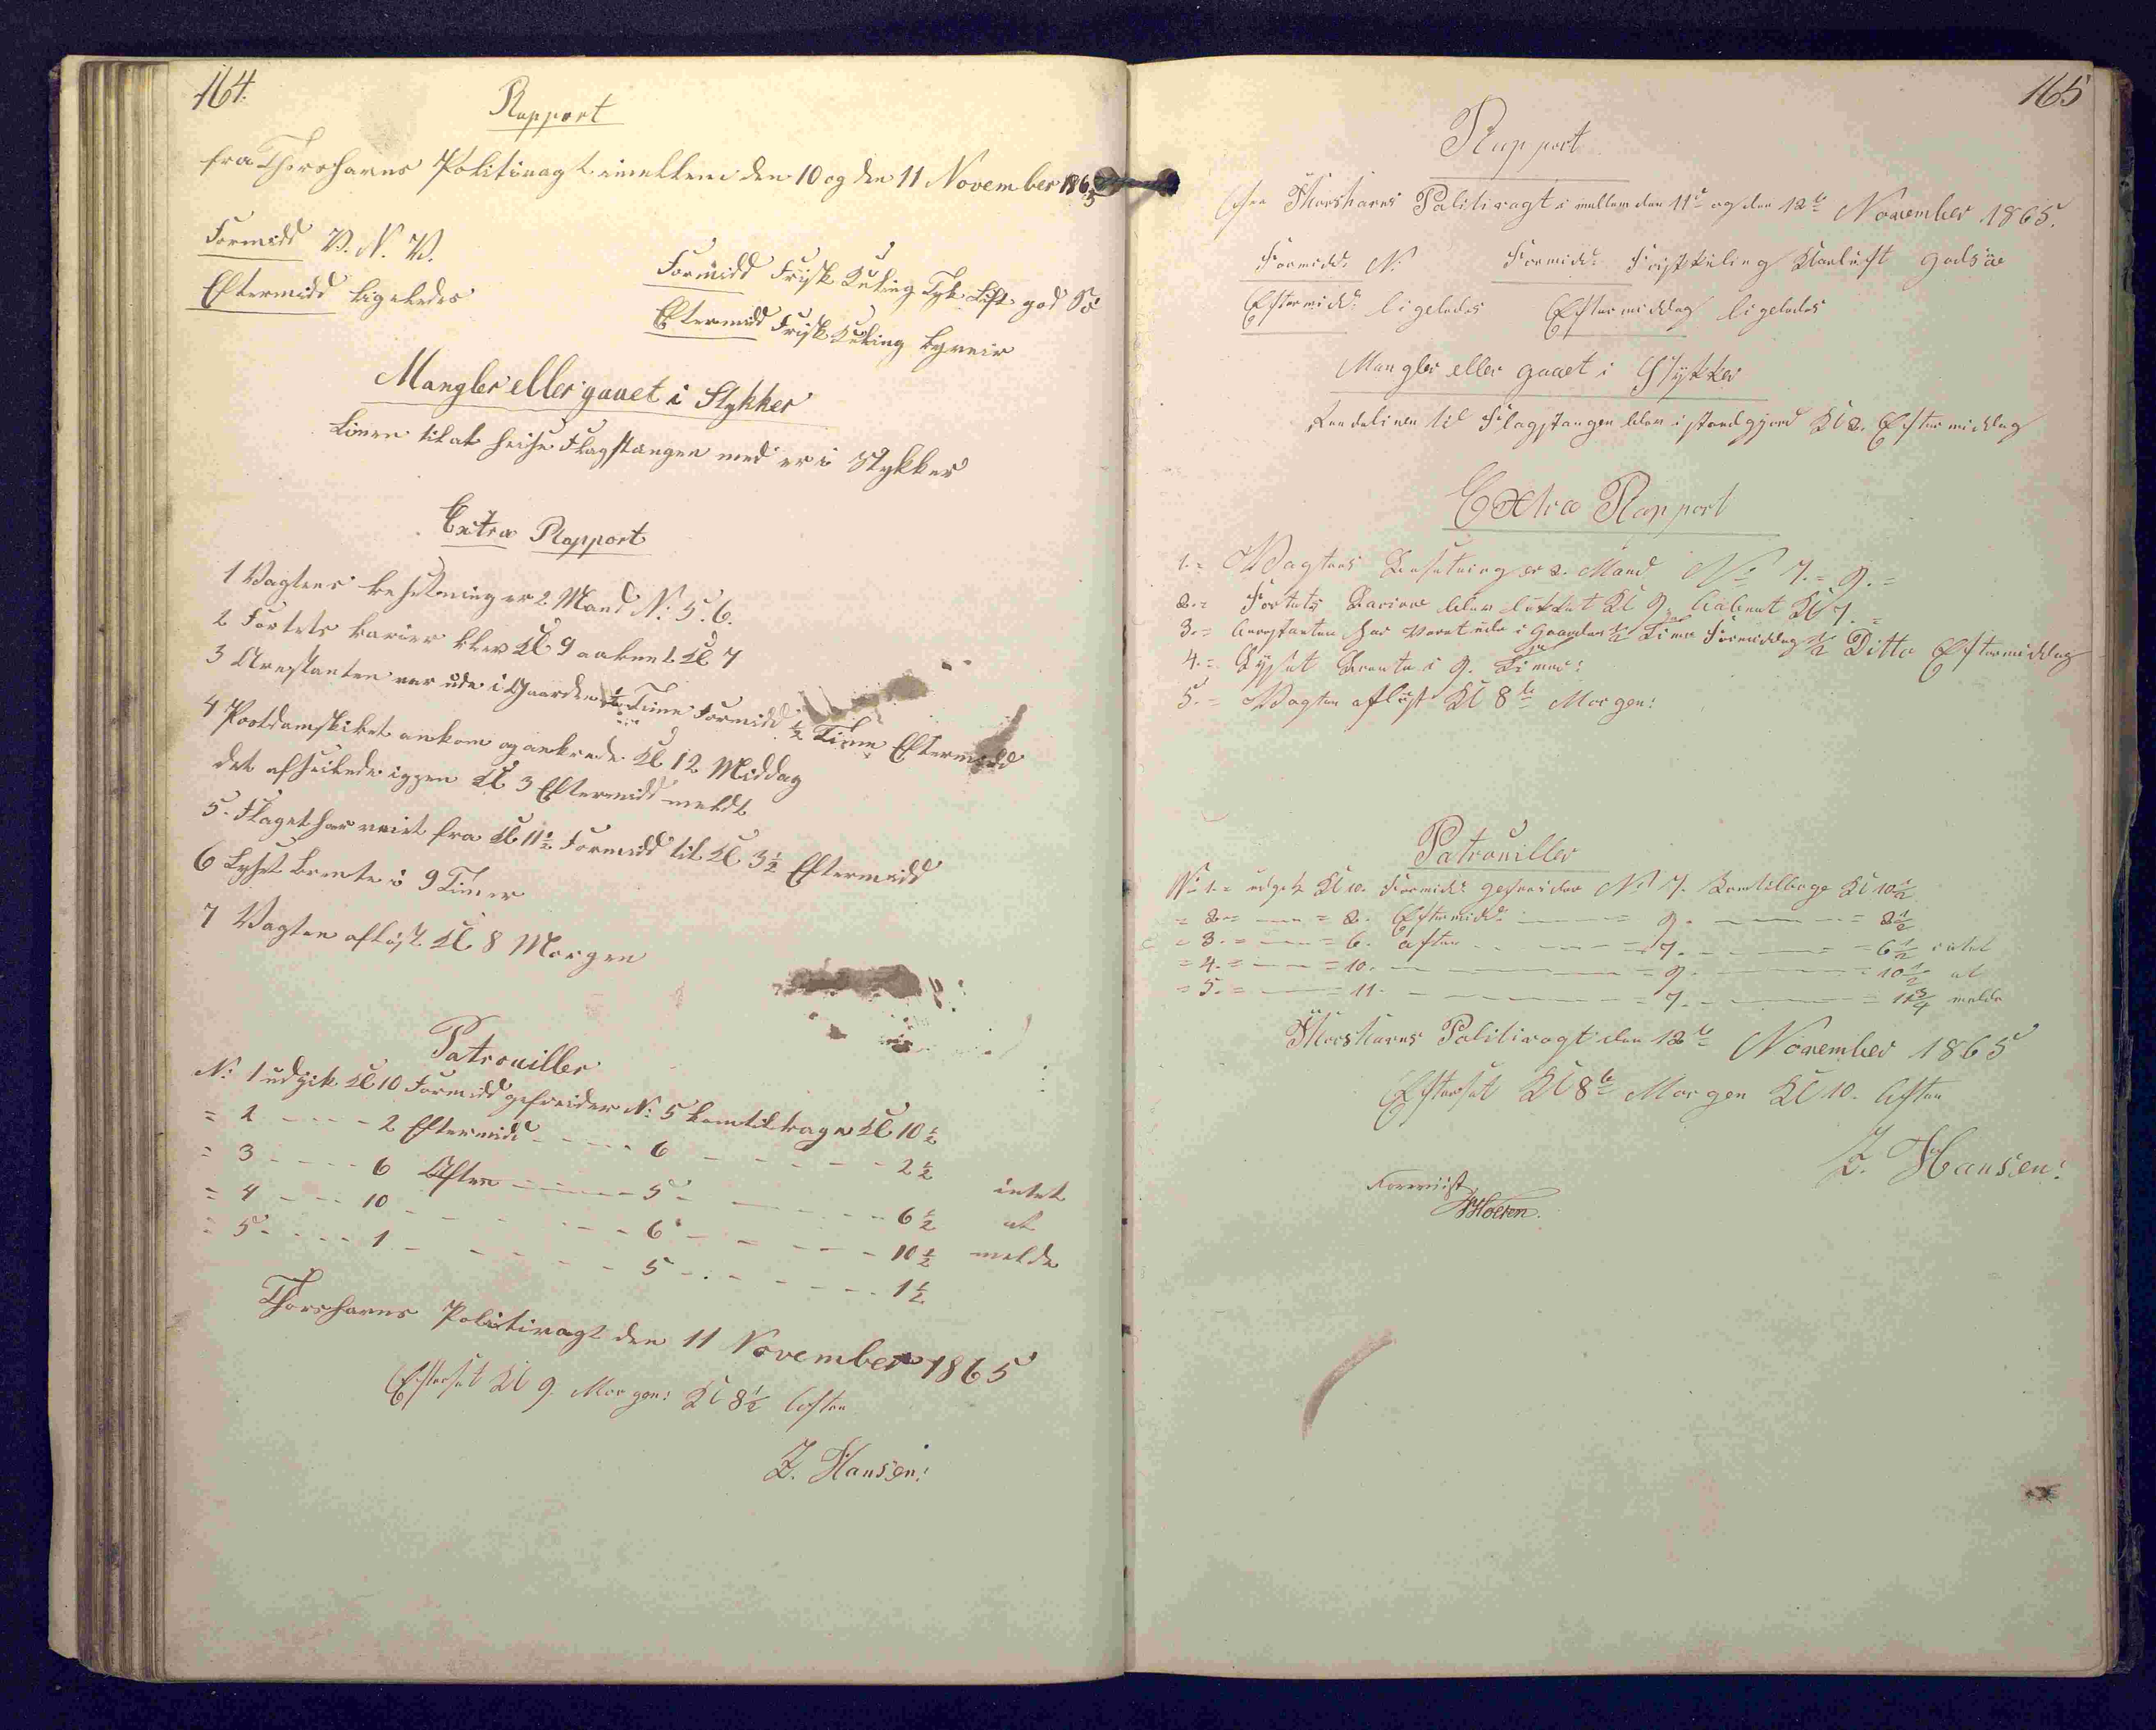 164.
Rapport
fra Thorshavns Politivagt imellem den 10 og den 11 November 1865
Formidd V. N. V.
Eftermidd ligeledes
Formidd Frisk Kuling Tyk Luft god Sö
Eftermidd Frisk Kuling Bygveir
Mangler eller gaaet i Stykker
Linen til at heise Flagstangen med er i Stykker
Extra Rapport
1 Vagtens besetning er 2 Mand N: 5. 6.
2 Fortets barier blev Kl 9 aabent Kl 7
3 Arestanten var ude i Gaarden ½ Time Formidd ½ Time Eftermidd
4 Postdamskibet ankom og ankrede Kl 12 Middag
det afseilede iggen Kl 3 Eftermidd meldt
5. Flaget har veiet fra Kl 11½ Formidd til Kl 3½ Eftermidd
6 Lyset brente i 9 Timer
7 Vagten aflöst Kl 8 Morgen
Patrouiller
N: 1 udgik Kl 10 Formidd gefreider N: 5 kom tilbage Kl 10½
= 2 - - - - 2 Eftermidd - - - - 6 - - - - - - 2½
= 3 - - - - 6 Aften - - - - 5 - - - - - - 6½ intet
= 4 - - - 10 - - - - - - 6 - - - - - - 10½ at
= 5 - - - - 1 - - - - - - 5 - - - - - - 1½ melde
Thorshavns Politivagt den 11 November 1865
Efterset Kl 9. Morgen: Kl 8½ Aften
Z. Hansen.
165
Rapport
fra Thorshavns Politivagt imellem den 11te og den 12te November 1865.
Formidd: N.
Formidd: Friskkuling Klarluft godsöe
Eftermidd: ligeledes
Eftermiddag ligeledes
Mangler eller gaaet i Stykker
til Flagstangen blev istandgjord Kl 2. Eftermiddag
Extra Rapport
1.= Vagtens Besetning er 2. Mand No 7.= 9.=
2.= Fortets Bariere blev lukket Kl 9. aabent Kl 7.=
3.= Arrestanten har veret ude i Gaarden ½ Time Formiddag ½ Ditto Eftermiddag
4.= Lyset brente i 9. Timer:
5.= Vagten aflöst Kl 8te Morgen:
Patrouiller
No 1.= udgik Kl 10. Formidd: gefreider No 7. kom tilbage Kl 10½
= 2.= —— = 2. Eftermidd: —— = 9. —— = 2½
= 3.= —— = 6. Aften —— = 7. —— = 6½ intet
= 4.= —— = 10. —— = 9. —— = 10½ at
= 5.= —— = 11. —— = 7. —— = 11¾ melde
Thorshavns Politivagt den 12te November 1865
Efterset Kl 8te Morgen Kl 10. Aften
Z. Hansen:
Forevist